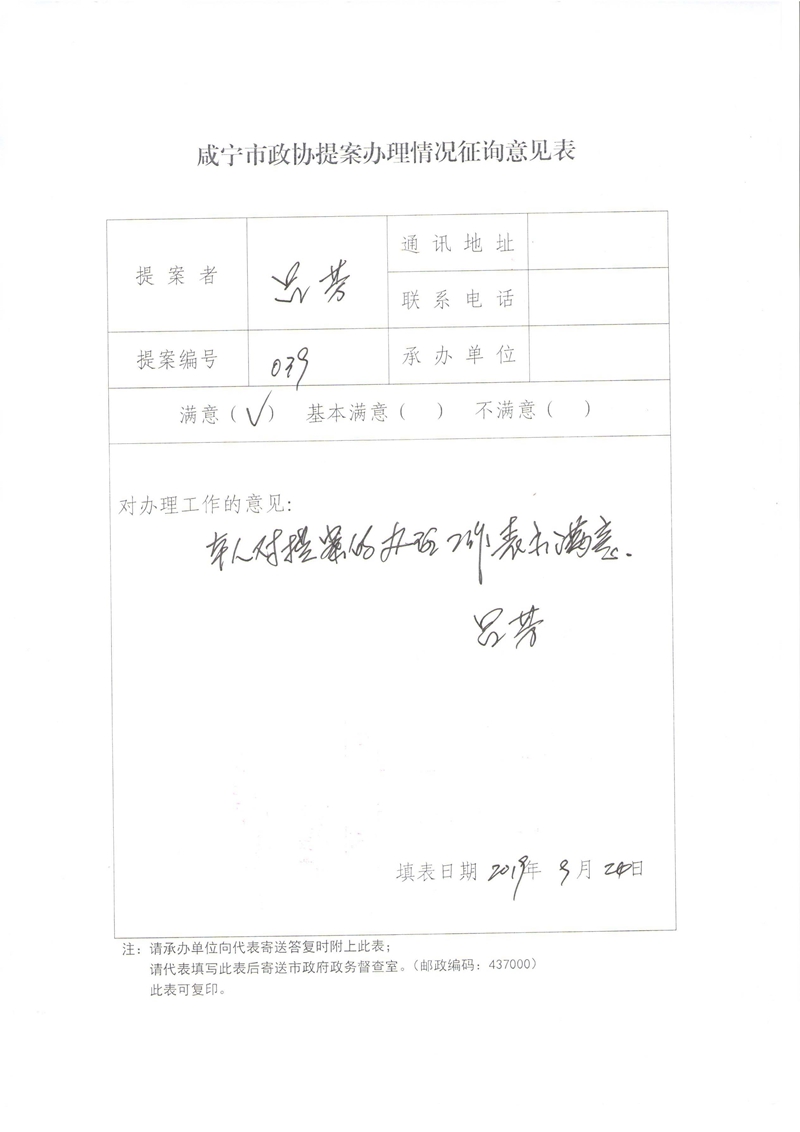 咸宁市政协提案办理情况征询意见表
提案者 吕芳 通讯地址
联系电话
提案编号 039 承办单位
满意(√) 基本满意( ) 不满意( )
对办理工作的意见:
本人对提案的办理工作表示满意.
吕芳
填表日期 2019年9月24日
注:请承办单位向代表寄送答复时附上此表;
请代表填写此表后寄送市政府政务督查室。(邮政编码:437000)
此表可复印。